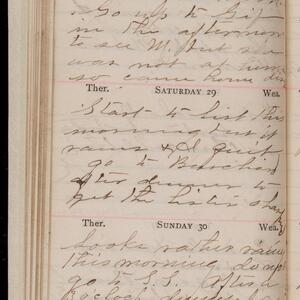 Go up to
in the afternoon
to see M. but she
was not at home
so came home
Ther. SATURDAY 29 Wea.
Start to list this
morning but it
rains & I quit
go to
after dinner to
get the lister
Ther. SUNDAY 30 Wea.
Looks rather rainy
this morning
go to S.S. After
o'clock